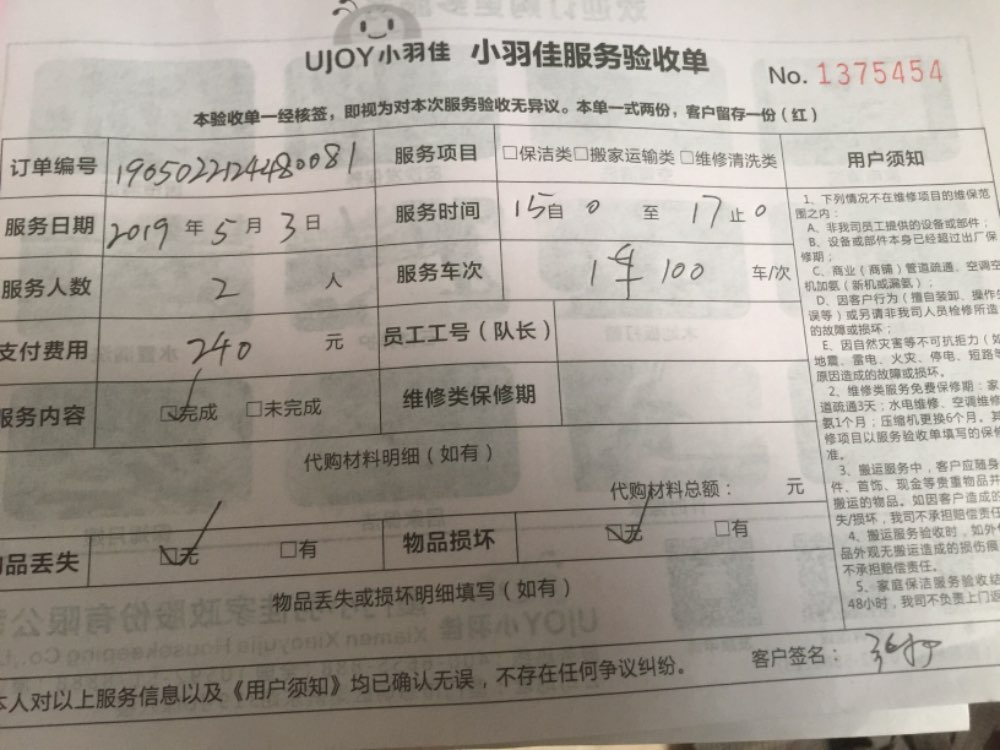 UJOY小羽佳 小羽佳服务验收单 No. 1375454
本验收单一经核签，即视为对本次服务验收无异议。本单一式两份，客户留存一份（红）
订单编号 19050221244480081 服务项目 □保洁类□搬家运输类□维修清洗类
服务日期 2019 年 5 月 3 日 服务时间 15 自 0 至 17 止 0
服务人数 2 人 服务车次 1车 100 车/次
支付费用 240 元 员工工号（队长）
服务内容 ☑完成 □未完成 维修类保修期
代购材料明细（如有）
代购材料总额： 元
物品丢失 ☑无 □有 物品损坏 ☑无 □有
物品丢失或损坏明细填写（如有）
本人对以上服务信息以及《用户须知》均已确认无误，不存在任何争议纠纷。 客户签名：
用户须知
1、下列情况不在维修项目的维保范
围之内：
A、非我司员工提供的设备或部件；
B、设备或部件本身已经超过出厂保
修期；
C、商业（商铺）管道疏通、空调空
机加氨（新机或漏氨）；
D、因客户行为（擅自装卸、操作失
误等）或另请非我司人员检修所造
的故障或损坏；
E、因自然灾害等不可抗拒力（如
地震、雷电、火灾、停电、短路等
原因造成的故障或损坏。
2、维修类服务免费保修期：家
道疏通3天；水电维修、空调维修
氨1个月；压缩机更换6个月。其
修项目以服务验收单填写的保修
准。
3、搬运服务中，客户应随身
件、首饰、现金等贵重物品并
搬运的物品。如因客户造成的
失/损坏，我司不承担赔偿责任
4、搬运服务验收时，如外
品外观无搬运造成的损伤痕
不承担赔偿责任。
5、家庭保洁服务验收结
48小时，我司不负责上门返